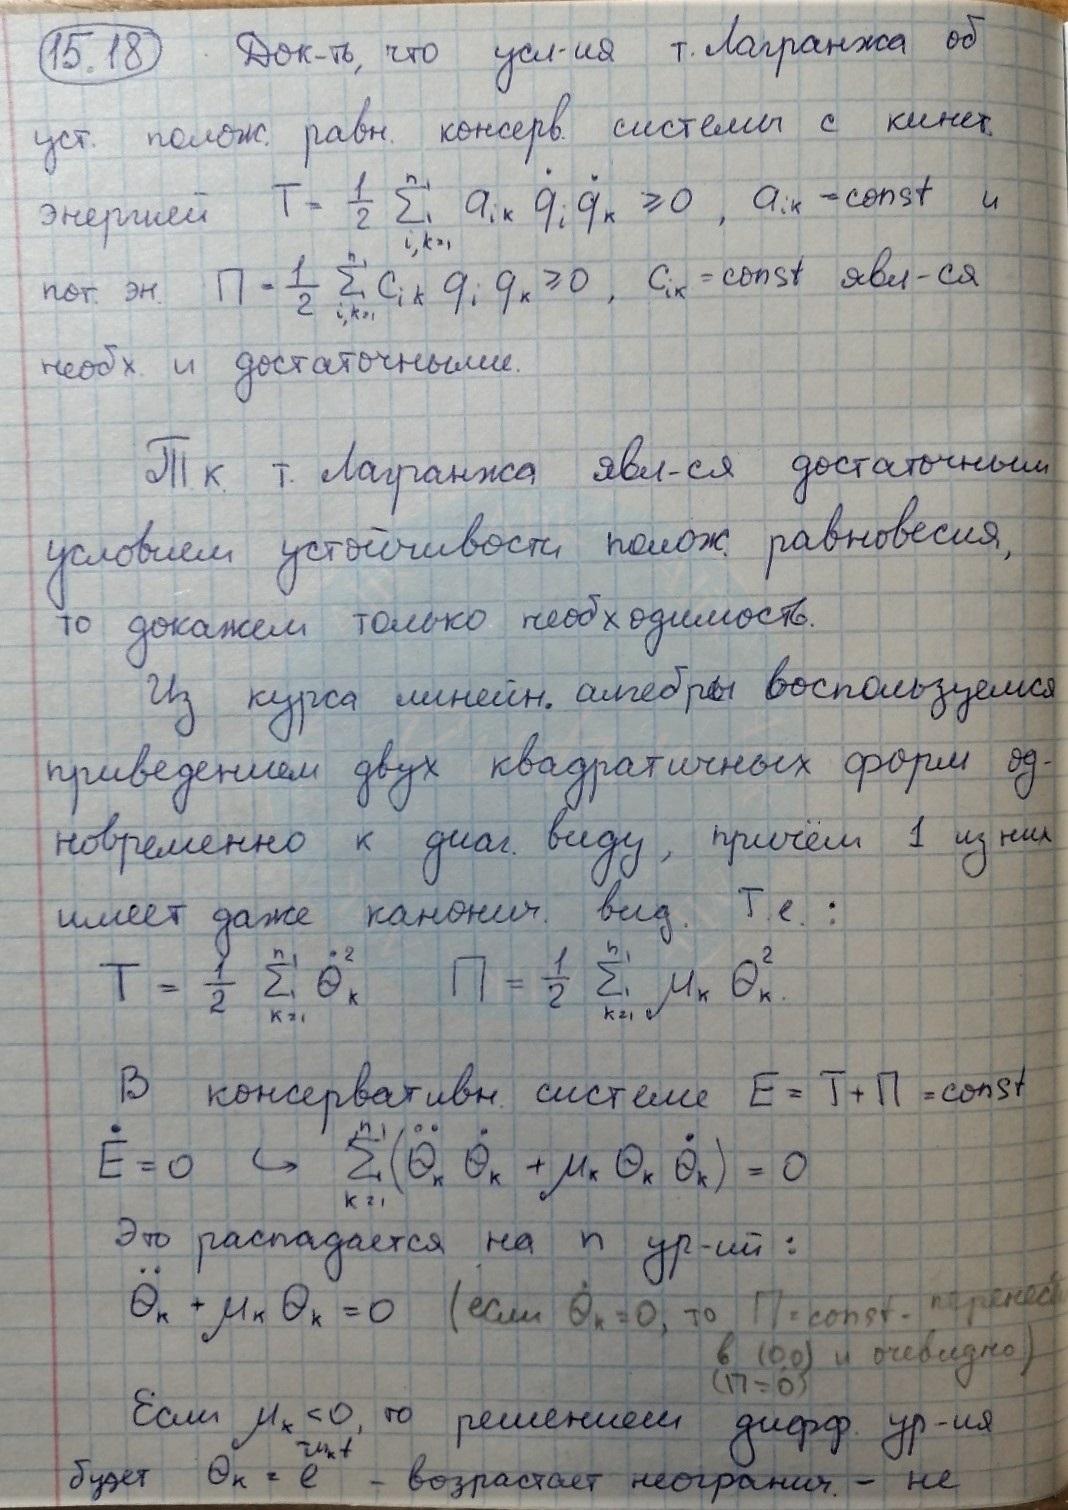 15.18 Док-ть, что усл-ия т. Лагранжа об
уст. полож. равн. консерв. системы с кинет.
энергией T = 1/2 Σ_{i,k=1}^{n} a_{ik} q̇_i q̇_k ≥ 0, a_{ik} = const и
пот. эн. П = 1/2 Σ_{i,k=1}^{n} c_{ik} q_i q_k ≥ 0, c_{ik} = const явл-ся
необх. и достаточными.
Т.к. т. Лагранжа явл-ся достаточным
условием устойчивости полож. равновесия,
то докажем только необходимость.
Из курса линейн. алгебры воспользуемся
приведением двух квадратичных форм од-
новременно к диаг. виду, причём 1 из них
имеет даже канонич. вид. Т.е.:
T = 1/2 Σ_{k=1}^{n} θ̇_k^2 П = 1/2 Σ_{k=1}^{n} μ_k θ_k^2.
В консервативн. системе E = T + П = const
Ė = 0 ↪ Σ_{k=1}^{n} (θ̈_k θ̇_k + μ_k θ_k θ̇_k) = 0
Это распадается на n ур-ий:
θ̈_k + μ_k θ_k = 0 (если θ̇_k = 0, то П = const -
в (0,0) и очевидно)
(П = 0)
Если μ_k < 0, то решением дифф. ур-ия
будет θ_k = e - возрастает неогранич. - не